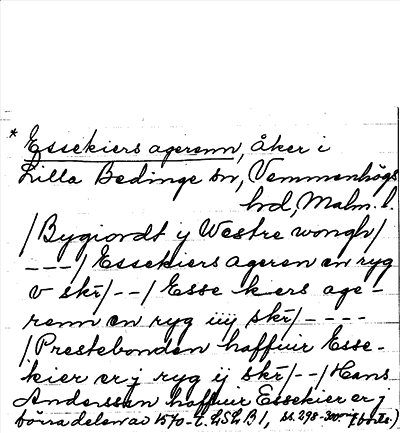 * Essekiers agerenn, åker i
Lilla Bedinge sn, Vemmenhögs
hd, Malm. l.
/Bygiordt y Westre wongh/
---/Essekiers ageren en ryg
v skr/--/Esse kiers age-
renn en ryg iiij skr/----
/Prestebonden haffuir Esse-
kier er j ryg ij skr/--/Hans
Anderssen haffuir Essekier er j
börra delen av 1570-t. LSLB 1, ss. 298-300